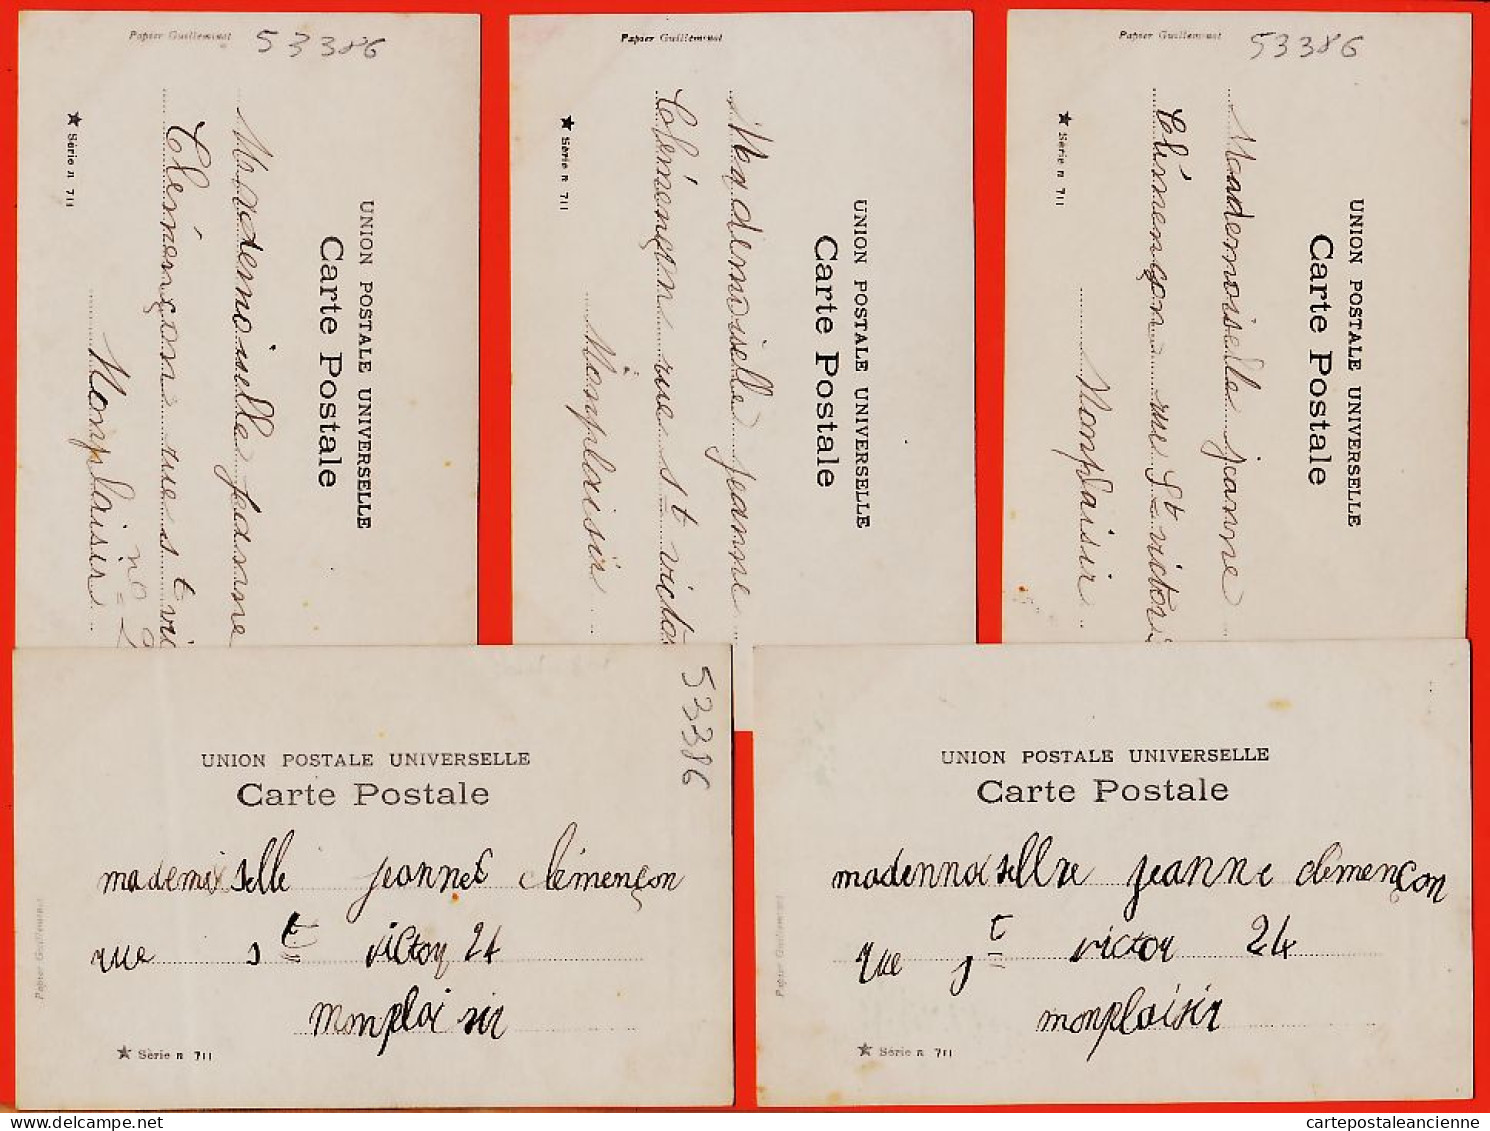 Papier Guilleminot 53386
★ Série n 711
UNION POSTALE UNIVERSELLE
Carte Postale
Mademoiselle Jeanne
Clémençon rue st vic
Monplaisir
no = 2
Papier Guilleminot
★ Série n 711
UNION POSTALE UNIVERSELLE
Carte Postale
Mademoiselle jeanne
Clémençon rue st victo
Monplaisir
Papier Guilleminot 53386
★ Série n 711
UNION POSTALE UNIVERSELLE
Carte Postale
Mademoiselle jeanne
Clémençon rue St victori
Monplaisir
53386
UNION POSTALE UNIVERSELLE
Carte Postale
mademoiselle jeanne clémençon
rue st victor 24
monplaisir
Papier Guilleminot
★ Série n 711
UNION POSTALE UNIVERSELLE
Carte Postale
jeanne clémençon
rue st victor 24
monplaisir
Papier Guilleminot
★ Série n 711
delcampe.net
cartepostaleancienne